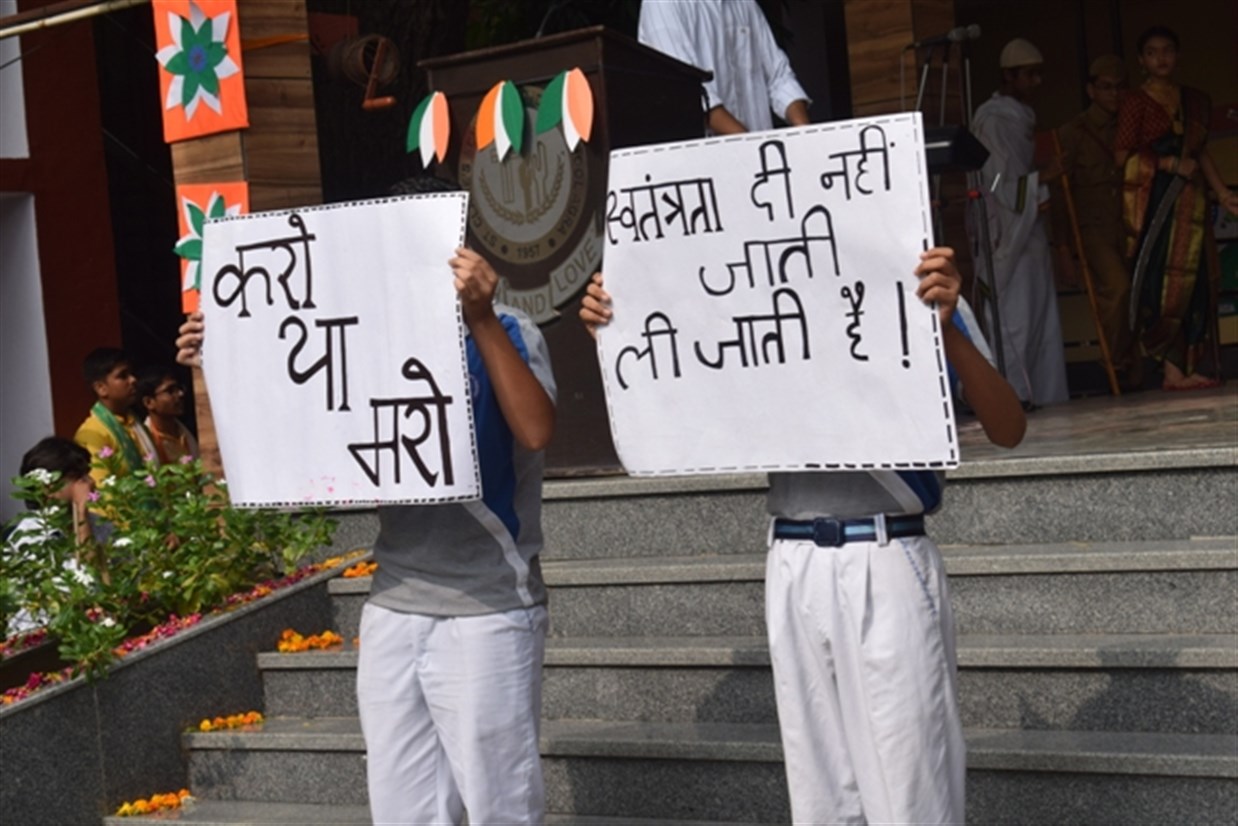 करो
या
मरो
स्वतंत्रता दी नहीं
जाती
ली जाती है !
1957
AND LOVE